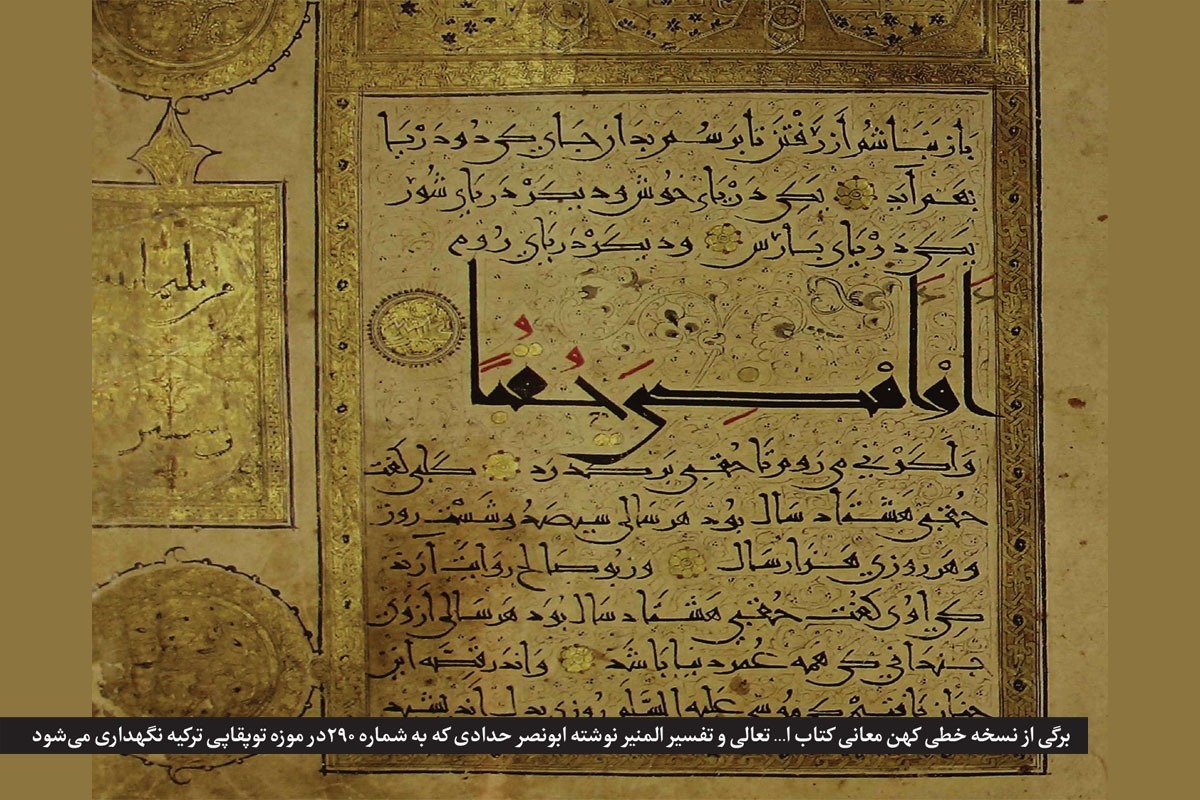 باز نباشم از رفتن تا برسم بدان جای کی دو دریا
بهم آید یکی دریای خوش و دیگر دریای شور
یکی دریای پارس و دیگر دریای روم
اَوْ اَمْضِيَ حُقُبًا
و اگر نی می روم تا حقبی برگذرد کلبی گفت
حقبی هشتاد سال بود هر سالی سیصد و شست روز
و هر روزی هزار سال وز بو صالح روایت آرند
کی اوی گفت حقبی هشتاد سال بود هر سالی ازون
چندانی کی همه عمر دنیا باشد و اندر قصه این
چنان یافتم کی موسی علیه السلم روزی بدل
برگی از نسخه خطی کهن معانی کتاب ا... تعالی و تفسیر المنیر نوشته ابونصر حدادی که به شماره ۲۹۰در موزه توپقاپی ترکیه نگهداری می‌شود